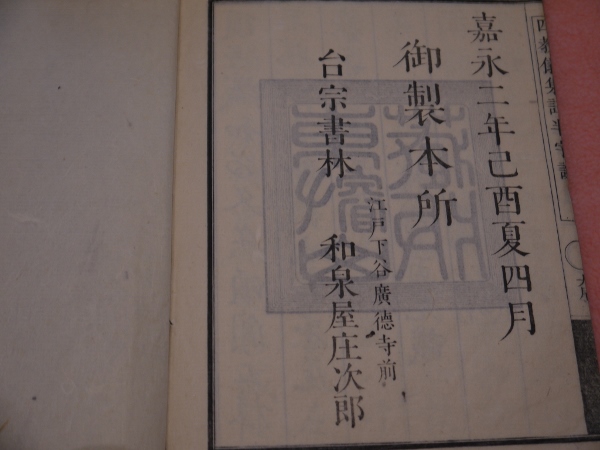 嘉永二年己酉夏四月
御製本所
江戸下谷廣德寺前
台宗書林 和泉屋庄次郎